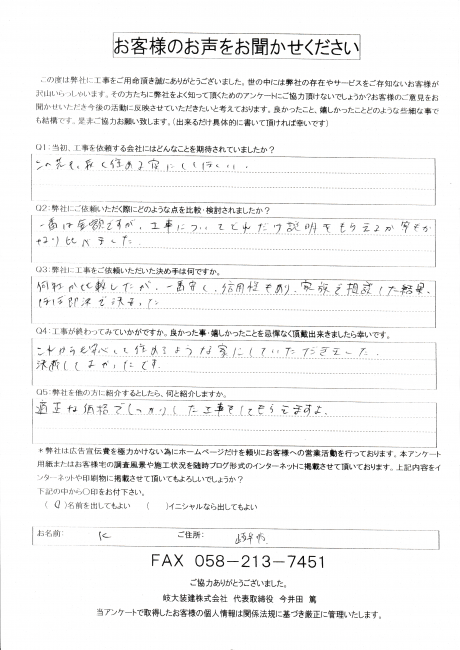 お客様のお声をお聞かせください
この度は弊社に工事をご用命頂き誠にありがとうございました。世の中には弊社の存在やサービスをご存知ないお客様が
沢山いらっしゃいます。その方たちに弊社をよく知って頂くためのアンケートにご協力頂けないでしょうか?お客様のご意見をお
聞かせいただき今後の活動に反映させていただきたいと考えております。良かったこと、嬉しかったことどのような些細な事で
も結構です。是非ご協力お願い致します。(出来るだけ具体的に書いて頂ければ幸いです)
Q1:当初、工事を依頼する会社にはどんなことを期待されていましたか?
この先も安心して住める家にしてほしい。
Q2:弊社にご依頼いただく際にどのような点を比較・検討されましたか?
一番は金額ですが、工事についてどれだけ説明をもらえるか等もか
なり比べました。
Q3:弊社に工事をご依頼いただいた決め手は何ですか。
何社か比較したが、一番安く、信用性もあり、家族で相談した結果、
ほぼ即決で決まった
Q4:工事が終わってみていかがですか。良かった事・嬉しかったことを忌憚なく頂戴出来きましたら幸いです。
これからも安心して住めるような家にしていただきました。
決断してよかったです。
Q5:弊社を他の方に紹介するとしたら、何と紹介しますか。
適正な価格でしっかりした工事をしてもらえますよ。
*弊社は広告宣伝費を極力かけない為にホームページだけを頼りにお客様への営業活動を行っております。本アンケート
用紙またはお客様宅の調査風景や施工状況を随時ブログ形式のインターネットに掲載させて頂いております。上記内容をイ
ンターネットや印刷物に掲載させて頂いてもよろしいでしょうか?
下記の中から○印をお付下さい。
(○)名前を出してもよい ( )イニシャルなら出してもよい
お名前: K ご住所: 岐阜市
FAX 058-213-7451
ご協力ありがとうございました。
岐大装建株式会社 代表取締役 今井田 篤
当アンケートで取得したお客様の個人情報は関係法規に基づき厳正に管理いたします。